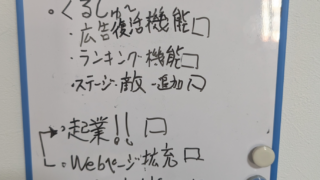 。くるしゅ〜
・広告復活機能□
・ランキング機能□
・ステージ・敵 追加□
・起業!! □
・Webページ拡充□